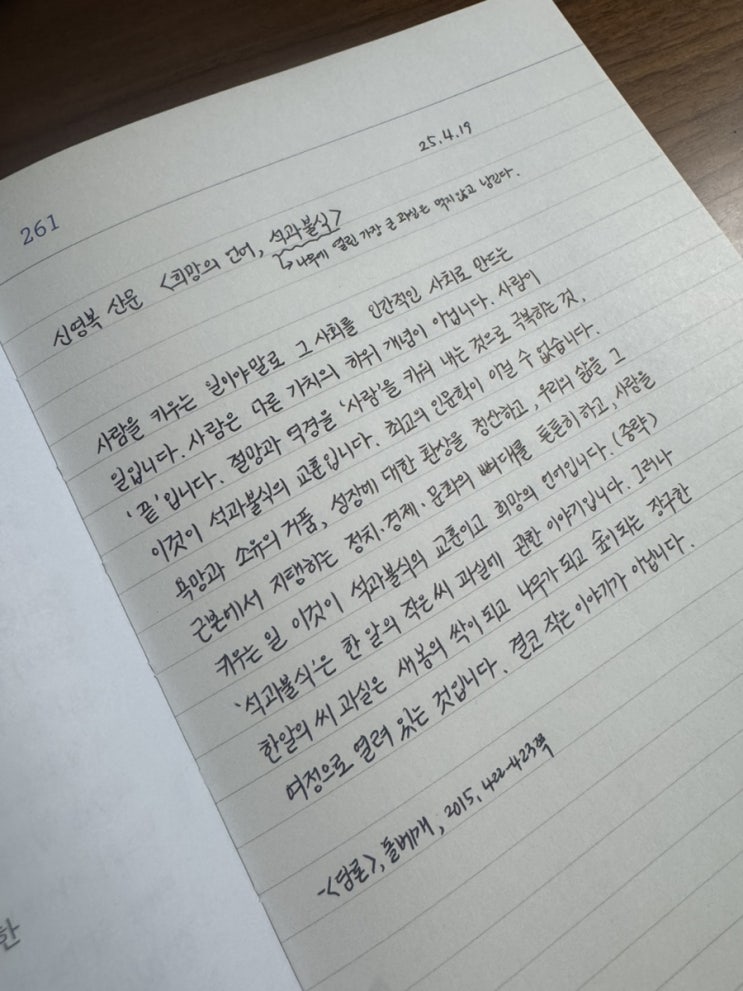 25.4.19
261
신영복 산문 <희망의 언어, 석과불식>
↳ 나무에 열린 가장 큰 과실은 먹지 않고 남긴다.
사람을 키우는 일이야말로 그 사회를 인간적인 사회로 만드는
일입니다. 사람은 다른 가치의 하위 개념이 아닙니다. 사람이
'끝'입니다. 절망과 역경을 '사람'을 키워 내는 것으로 극복하는 것,
이것이 석과불식의 교훈입니다. 최고의 인문학이 아닐 수 없습니다.
욕망과 소유의 거품, 성장에 대한 환상을 청산하고, 우리의 삶을 그
근본에서 지탱하는 정치·경제·문화의 뼈대를 튼튼히 하고, 사람을
키우는 일 이것이 석과불식의 교훈이고 희망의 언어입니다. (중략)
'석과불식'은 한 알의 작은 씨 과실에 관한 이야기입니다. 그러나
한알의 씨 과실은 새봄의 싹이 되고 나무가 되고 숲이 되는 장구한
여정으로 열려 있는 것입니다. 결코 작은 이야기가 아닙니다.
-<담론>, 돌베개, 2015, 422-423쪽
한